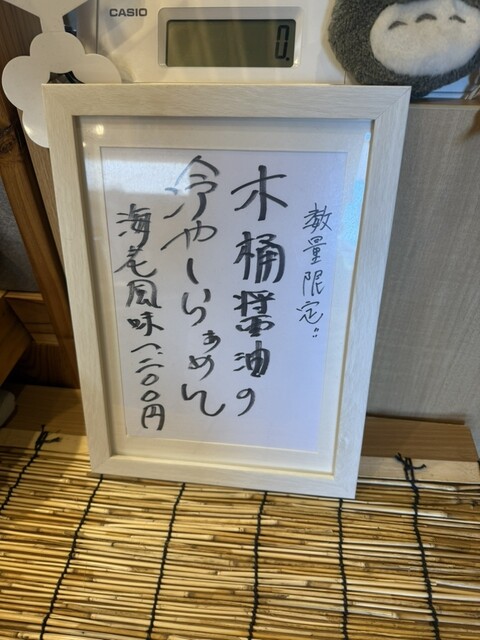 CASIO
0.
数量限定!!
木桶醤油の
冷やしらぁめん
海老風味一、二〇〇円